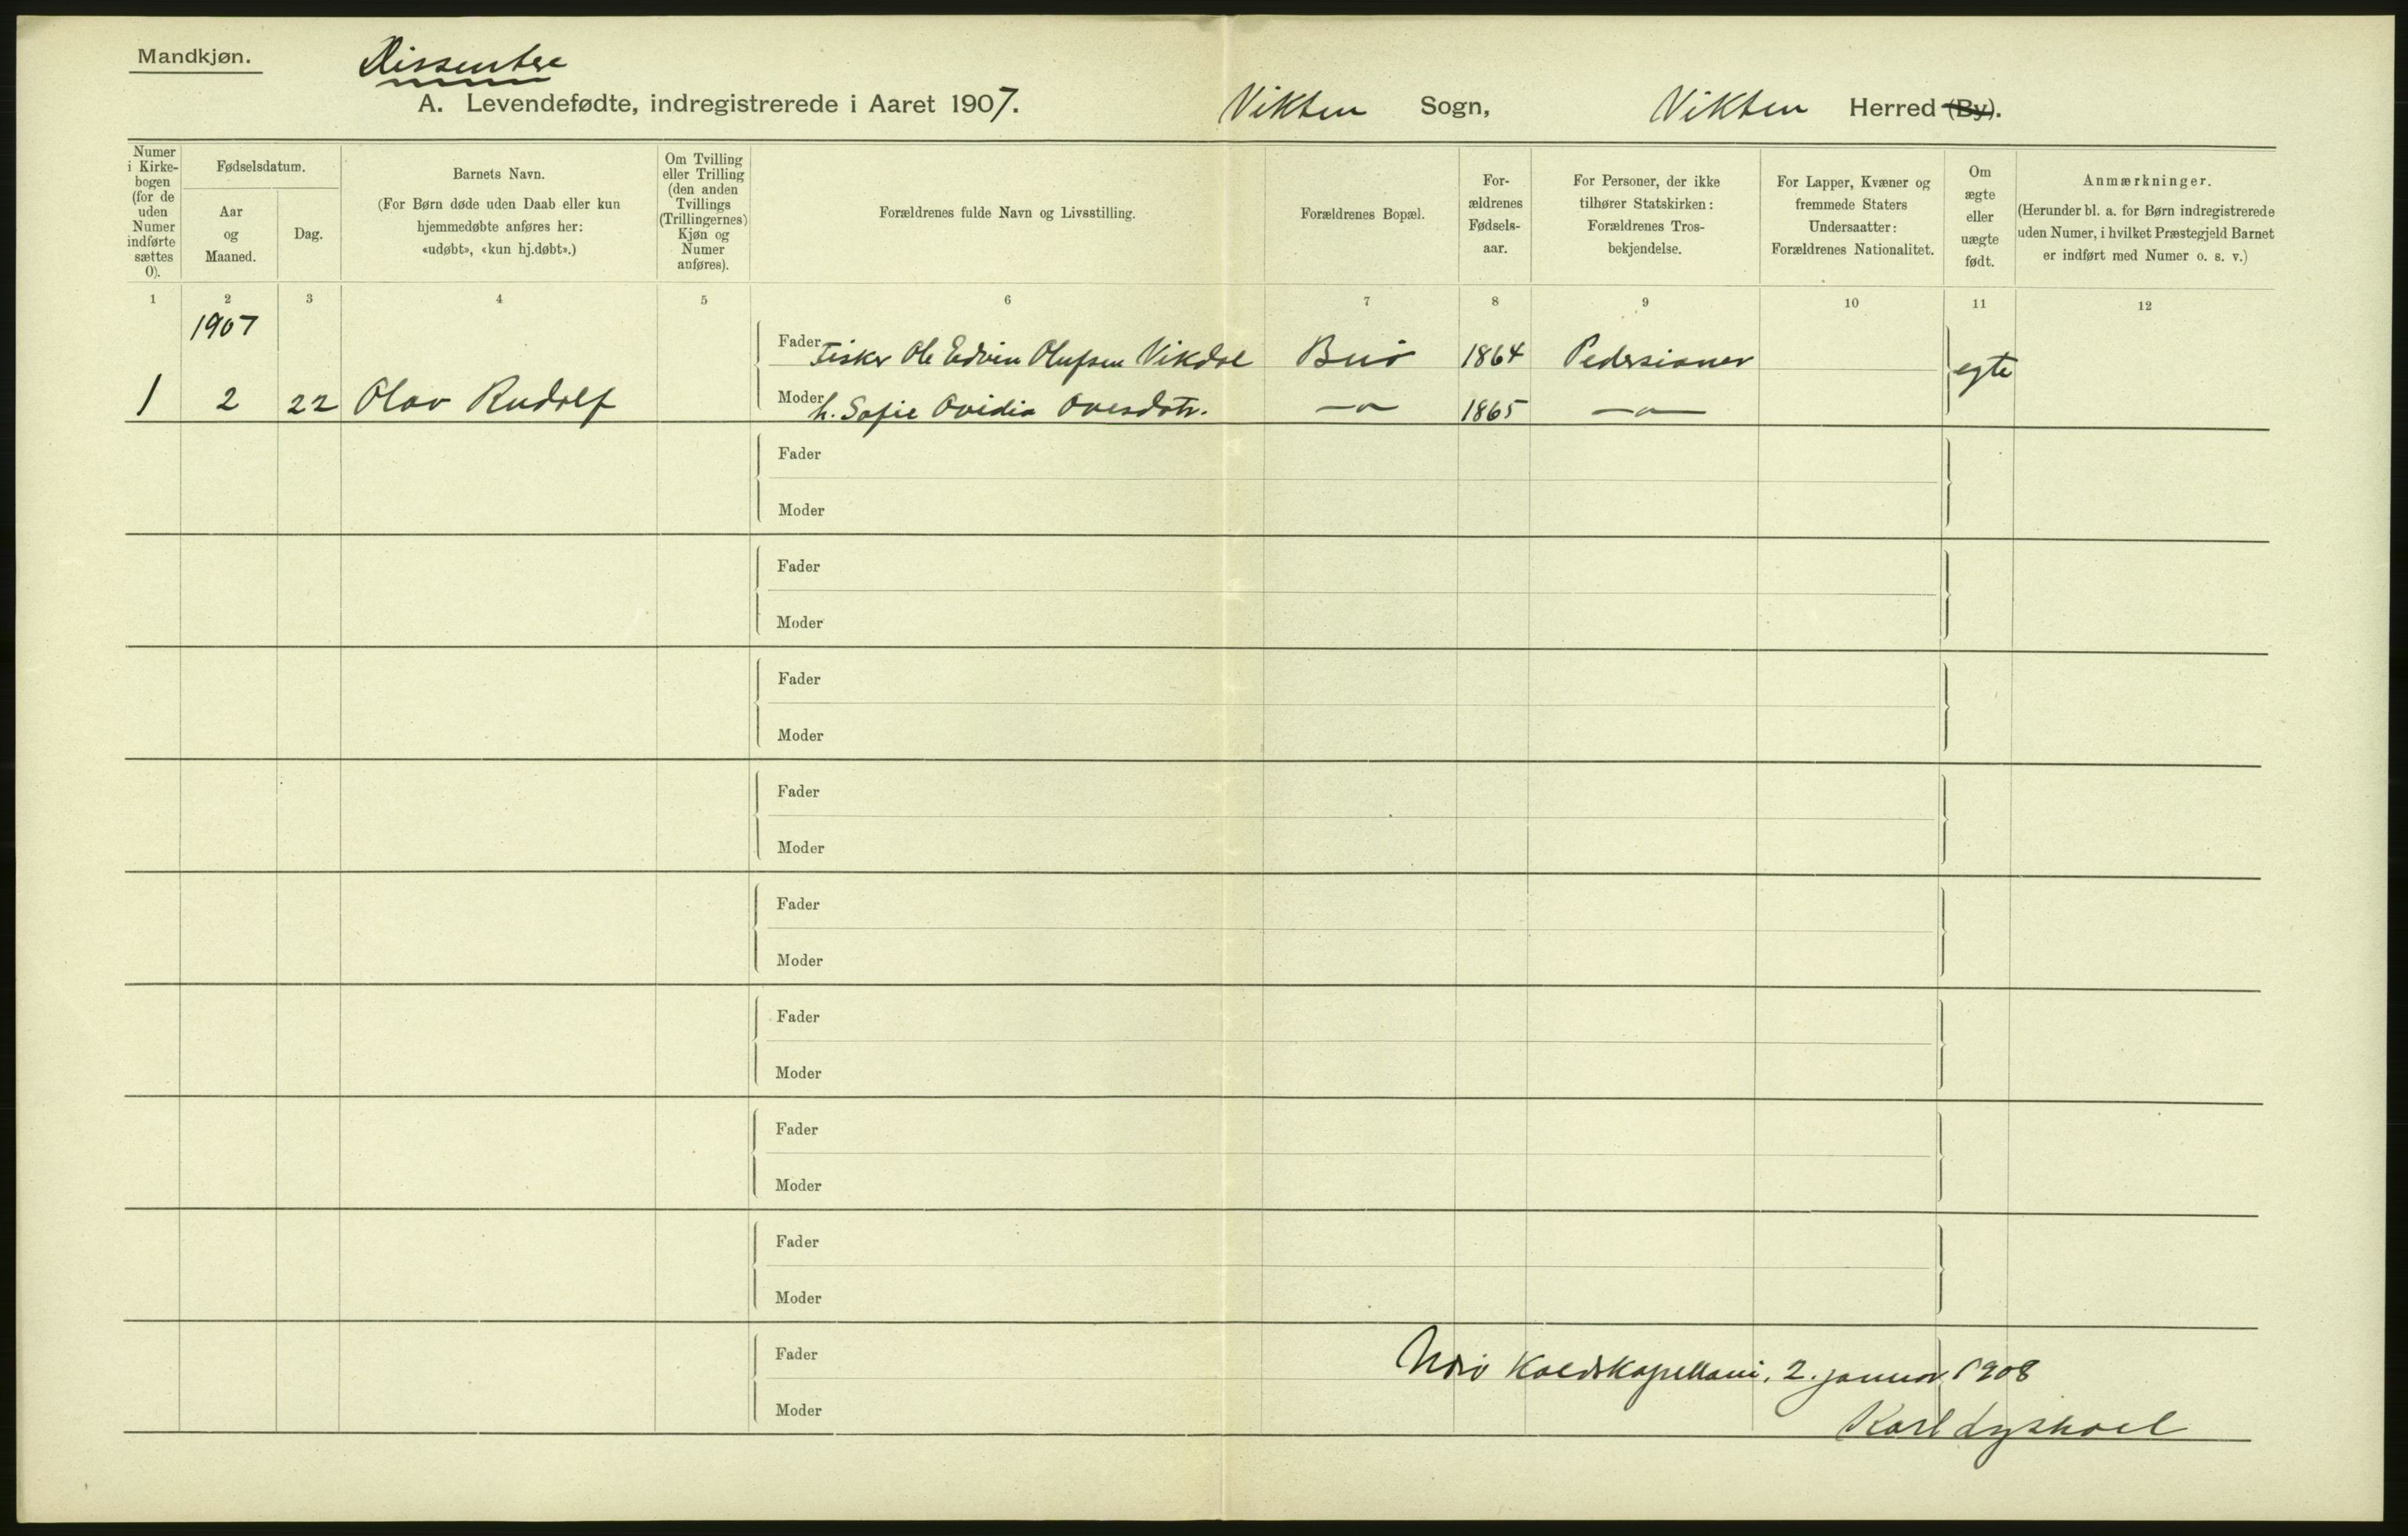 Mandkjøn.
Dissentere
A. Levendefødte, indregistrerede i Aaret 1907. Vikten Sogn, Vikten Herred (By).
Numer i Kirke-bogen (for de uden Numer indførte sættes 0).
Fødselsdatum.
Aar og Maaned.
Dag.
Barnets Navn.
(For Børn døde uden Daab eller kun hjemmedøbte anføres her: «udøbt», «kun hj.døbt».)
Om Tvilling eller Trilling (den anden Tvillings (Trillingernes) Kjøn og Numer anføres).
Forældrenes fulde Navn og Livsstilling.
Forældrenes Bopæl.
For-ældrenes Fødsels-aar.
For Personer, der ikke tilhører Statskirken: Forældrenes Tros-bekjendelse.
For Lapper, Kvæner og fremmede Staters Undersaatter: Forældrenes Nationalitet.
Om ægte eller uægte født.
Anmærkninger.
(Herunder bl. a. for Børn indregistrerede uden Numer, i hvilket Præstegjeld Barnet er indført med Numer o. s. v.)
1 2 3 4 5 6 7 8 9 10 11 12
1907
Fader Fisker Ole Edvin Olufsen Vikdal 1864 Pedersianer
egte
1 2 22 Olav Rudolf Moder h. Sofie Ovidia Ovesdatr. —"— 1865 —"—
Fader
Moder
Fader
Moder
Fader
Moder
Fader
Moder
Fader
Moder
Fader
Moder
Fader
Moder
Fader
Moder
Fader
Moder
2. januar 1908
Karl Lyshoel